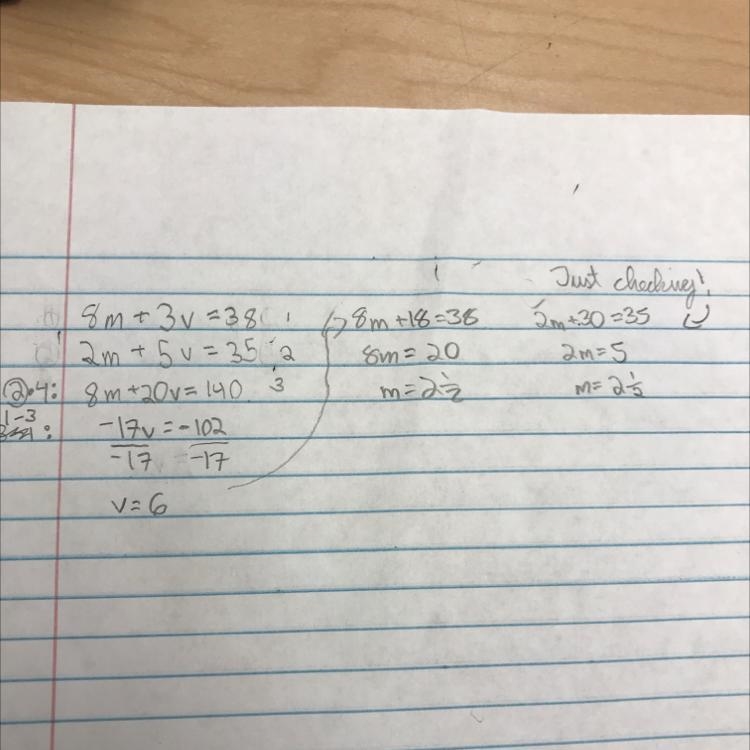 8m + 3v = 38 1
2m + 5v = 35 2
②•4: 8m + 20v = 140 3
1-3
: -17v = -102
-17 -17
v = 6
8m + 18 = 38
8m = 20
m = 2 1/2
Just checking!
2m + 30 = 35
2m = 5
m = 2 1/2